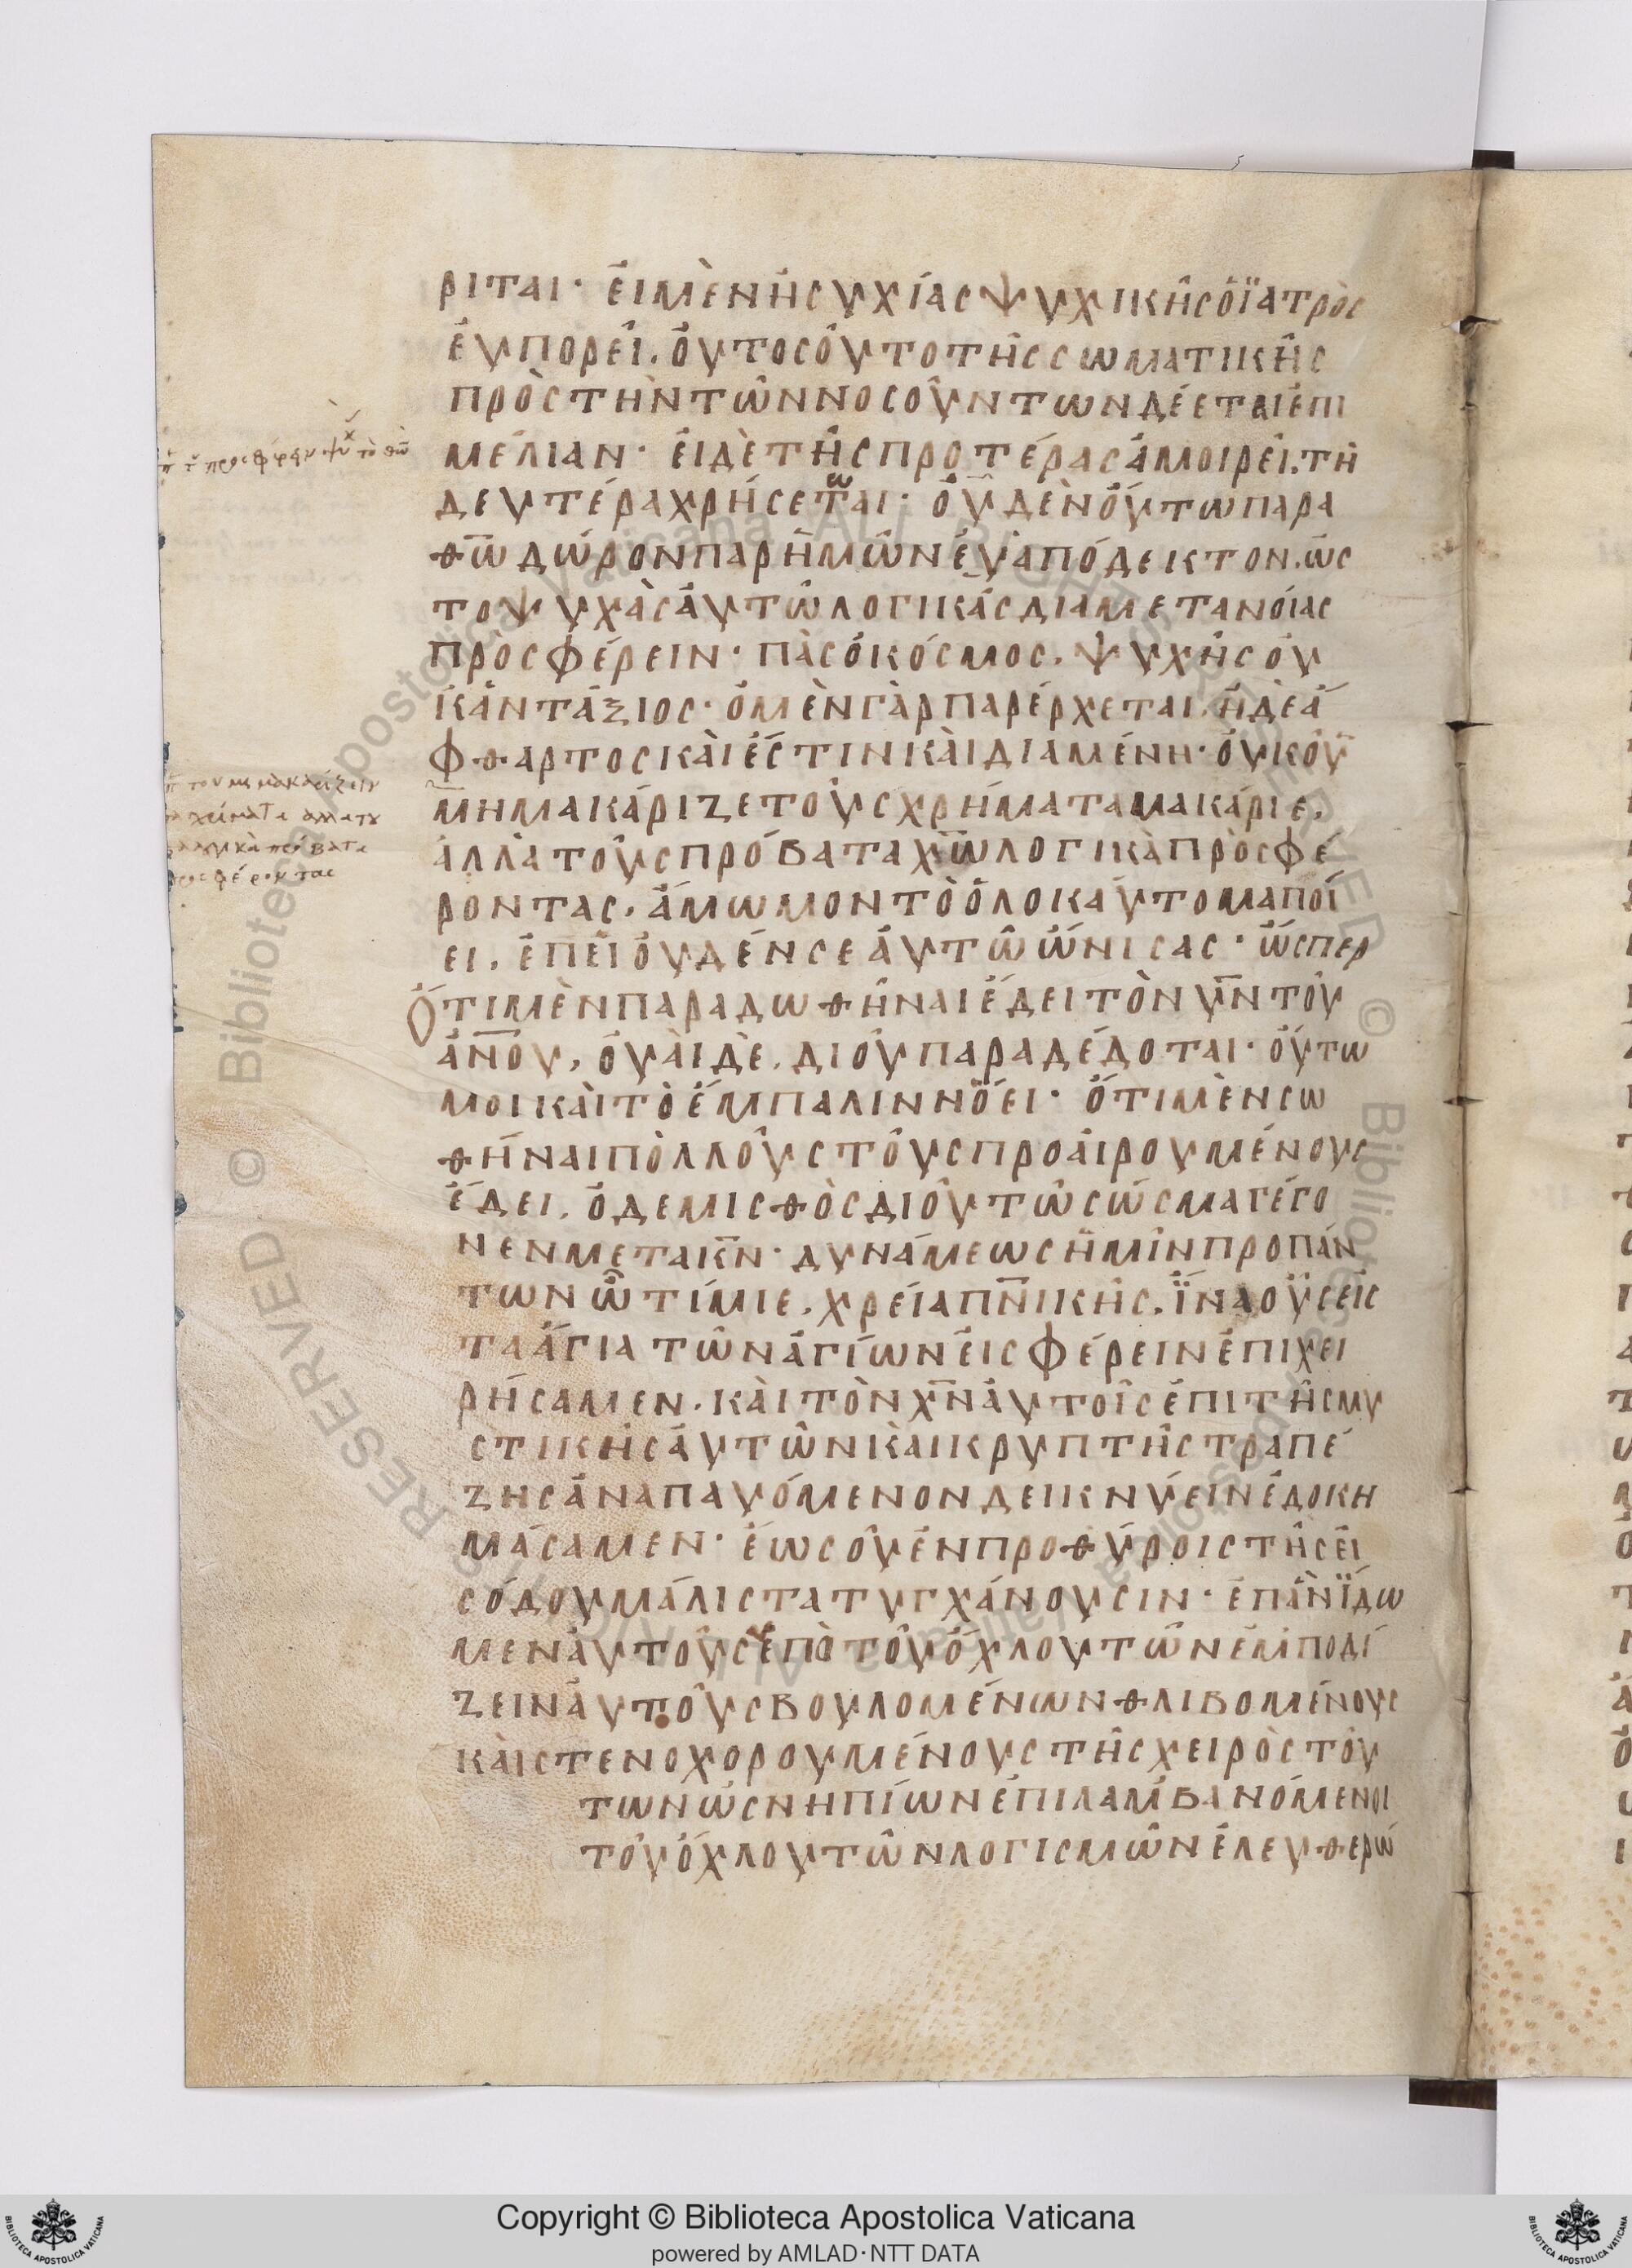 ριται· εἰ μὲν ἡσυχίας ψυχικῆς ὁ ἰατρὸς
εὐπορεῖ, οὗτος οὐ τὸ τῆς σωματικῆς
πρὸς τὴν τῶν νοσούντων δέεται ἐπι
μέλιαν· εἰ δὲ τῆς προτέρας ἀμοιρεῖ, τῇ
δευτέρα χρήσεται· οὐδὲν οὕτω παρα
θω δώρον παρ ἡμῶν εὐαπόδεικτον, ὡς
το ψυχὰς αὐτῶ λογικάς δια μετανοίας
πρὸσφέρειν· πὰς ὁ κόσμος, ψυχῆς οὐ
κ ἀντάξιος· ὁ μὲν γὰρ παρέρχεται, ἡ δὲ ἄ
φθαρτος καὶ ἐστιν καὶ διαμένη· οὐκοῦν
μη μακάριζε τοὺς χρήματα μακάριε,
ἀλλὰ τοὺς πρόβατα χω λογικὰ πρὸσφέ
ροντας, ἄμωμον τὸ ὁλοκαύτομα ποί
ει, ἐπεὶ οὐδέν σεαυτῶ ὤνισας· ὥσπερ
Ὅτι μὲν παραδωθῆναι ἔδει τὸν υν τοῦ
ἀνου, οὐαὶ δὲ, δι οὗ παραδέδοται· οὕτω
μοι καὶ τὸ ἔμπαλιν νόει· ὅτι μὲν σω
θῆναι πὸλλοὺς τοὺς προαιρουμένους
ἔδει, ὁ δε μισθὸς δι οὗ τὼς ὡς μα γέγο
νεν μετα κν· δυνάμεως ἡμῖν προ πάν
των ὦ τίμιε, χρεία πνικῆς, ἵνα οὓς εἰς
τα ἅγια τῶν ἁγίων εἰσφέρειν ἐπιχει
ρήσαμεν, καὶ τὸν χν αὐτοῖς ἐπι τῆς μυ
στικῆς αὐτῶν καὶ κρυπτῆς τραπέ
ζης ἀναπαυόμενον δεικνύειν ἐδοκη
μάσαμεν· ἕως οὗ ἐν προθύροις τῆς εἰ
σόδου μάλιστα τυγχάνουσιν· ἐπὰν ἴδω
μεν αὐτοὺς ὑπὸ τοῦ ὄχλου τῶν ἐμποδί
ζειν αὐτοὺς βουλομένων θλιβομένους
καὶ στενοχορουμένους τῆς χειρὸς τού
των ὡς νηπίων ἐπιλαμβανόμενοι
τοῦ ὄχλου τῶν λογισμῶν ἐλευθερώ
Copyright © Biblioteca Apostolica Vaticana
powered by AMLAD·NTT DATA